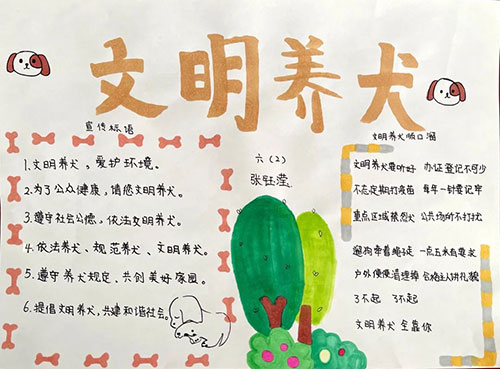 文明养犬
宣传标语
1.文明养犬，爱护环境。
2.为了公众健康，请您文明养犬。
3.遵守社会公德，依法文明养犬。
4.依法养犬、规范养犬、文明养犬。
5.遵守养犬规定、共创美好家园。
6.提倡文明养犬，共建和谐社会。
六（2）
张钰滢
文明养犬顺口溜
文明养犬要听好 办证登记不可少
不忘定期打疫苗 每年一针要记牢
重点区域禁烈犬 公共场所不打扰
遛狗牵着绳子走 一点五米有要求
户外便便清理掉 合格主人讲礼貌
了不起 了不起
文明养犬全靠你